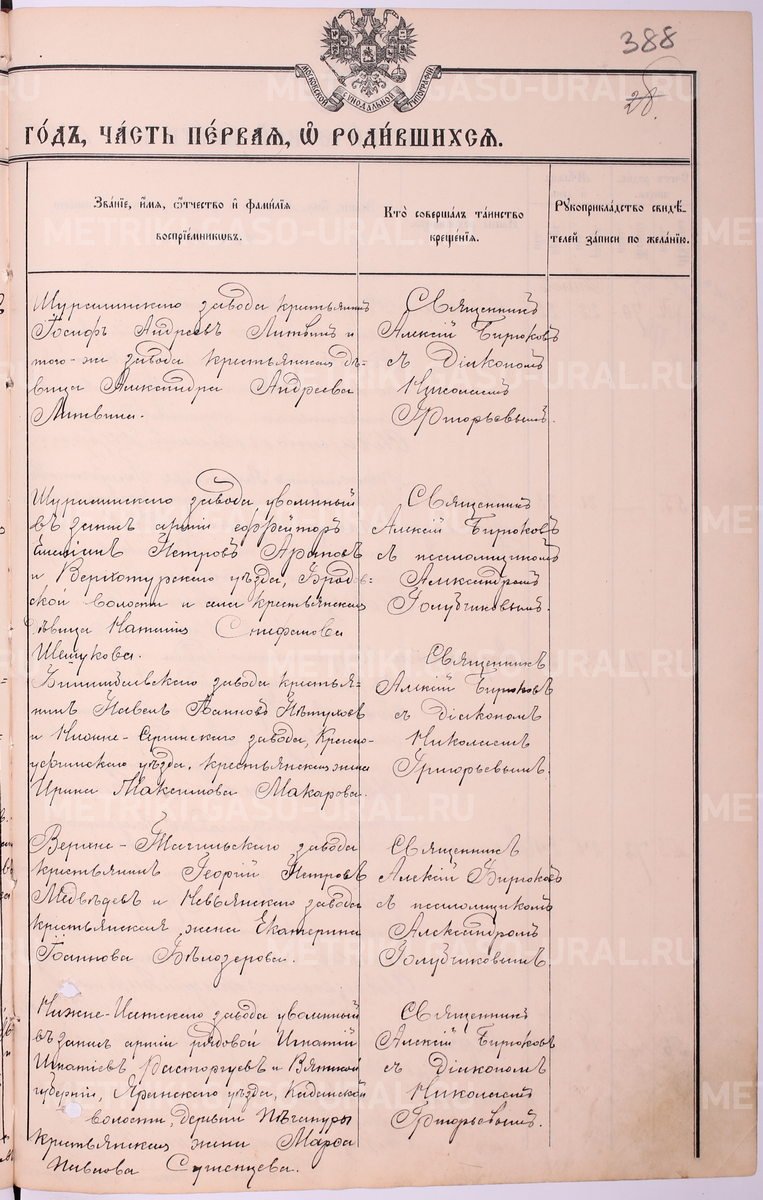 388
28.
МОСКОВСКОЙ СѴНОДАЛЬНОЙ ТИПОГРАФІИ
ГО́ДЪ, ЧА́СТЬ ПЕ́РВАЯ, Ѡ҆ РОДИ́ВШИХСЯ.
Зва́нїе, и҆́мя, ѻ҆́тчество и҆ фамѝлїя
воспрїе́мникѡвъ.
Кто̀ соверша́лъ та́инство
креще́нїя.
Рꙋкоприкла́дство свидѣ́-
телей за́писи по жела́нїю.
Шуралинскаго завода крестьянинъ
Іосифъ Андреевъ Литвинъ и
того-же завода крестьянская дѣ-
вица Александра Андреева
Литвина.
Священникъ
Алексій Бирюковъ
съ Діакономъ
Николаемъ
Григорьевымъ.
Шуралинскаго завода уволенный
въ запасъ арміи ефрейторъ
Петровъ Араповъ
и Верхотурскаго уѣзда, Бродов-
ской волости и села крестьянская
дѣвица Наталія
Шешукова.
Священникъ
Алексій Бирюковъ
съ псаломщикомъ
Александромъ
Голубчиковымъ.
Билимбаевскаго завода крестья-
нинъ Павелъ Іоанновъ Пѣтуховъ
и Нижне-Сергинскаго завода, Красно-
уфимскаго уѣзда, крестьянская жена
Ирина Максимова Макарова.
Священникъ
Алексій Бирюковъ
съ Діакономъ
Николаемъ
Григорьевымъ.
Верхне-Тагильскаго завода
крестьянинъ Георгій Петровъ
Медвѣдевъ и Невьянскаго завода
крестьянская жена Екатерина
Іоаннова Бѣлозерова.
Священникъ
Алексій Бирюковъ
съ псаломщикомъ
Александромъ
Голубчиковымъ.
Нижне-Исетскаго завода уволенный
въ запасъ арміи рядовой Игнатій
Игнатіевъ Расторгуевъ и Вятской
губерніи, Яранскаго уѣзда,
волости, деревни
крестьянская жена Марѳа
Павлова
Священникъ
Алексій Бирюковъ
съ Діакономъ
Николаемъ
Григорьевымъ.
METRIKI.GASO-URAL.RU